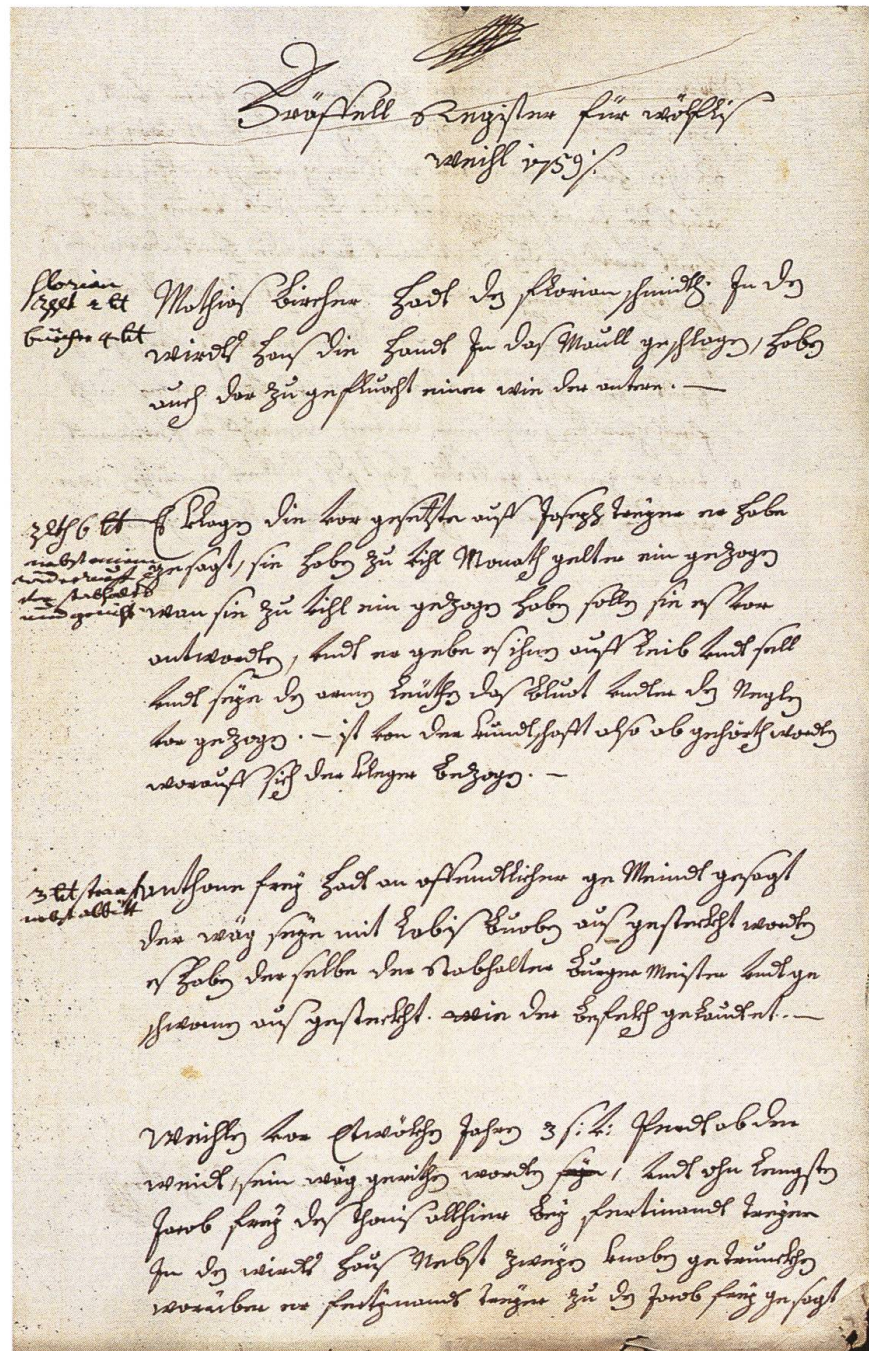 Fräffell Register für wölflis
weihl 1759.
Florian
2 lt
bürcher 4 lt
Mathias Bircher hadt den Florian schmidt: In den
wirdts haus die handt In das Maull geschlagen, haben
auch dar zu gefluocht einer wie der antere. —
6 lt
nebst einem
widerruof
der stabhalter
und gericht
Es klagen die vor gesetzte auff Joseph Treyer er habe
gesagt, sie haben zu vihl Monath gelter ein gezogen
wan sie zu vihl ein gezogen haben sollen sie es ver
antworden, undt er gebe es ihnen auff Leib undt sell
undt seye den armen Leüthen das Bluot undter den Neglen
vor gezogen. — ist von der kundtschafft also ab gehörth worden
worauff sich der kleger bezogen. —
3 lt straf
nebst abbitt
anthone frey hadt an offendtlicher ge Meindt gesagt
der wäg seye mit Lobis Buoben aus gesteckht worden
es haben derselbe der Stabhalter Burger Meister undt ge
schworne aus gesteckht. wie der befelch gelaudtet. —
Weihlen vor Etwölchen Jahren 3 s: v: Pferdt ab der
weidt, sein wäg gerithen worden, undt ohn Lengsten
Jacob frey des thonis allhier bey fertinandt Treyer
In den wirdts haus Nebst zweyen knaben getrunckhen
worüber er fertynandt Treyer zu den Jacob frey gesagt